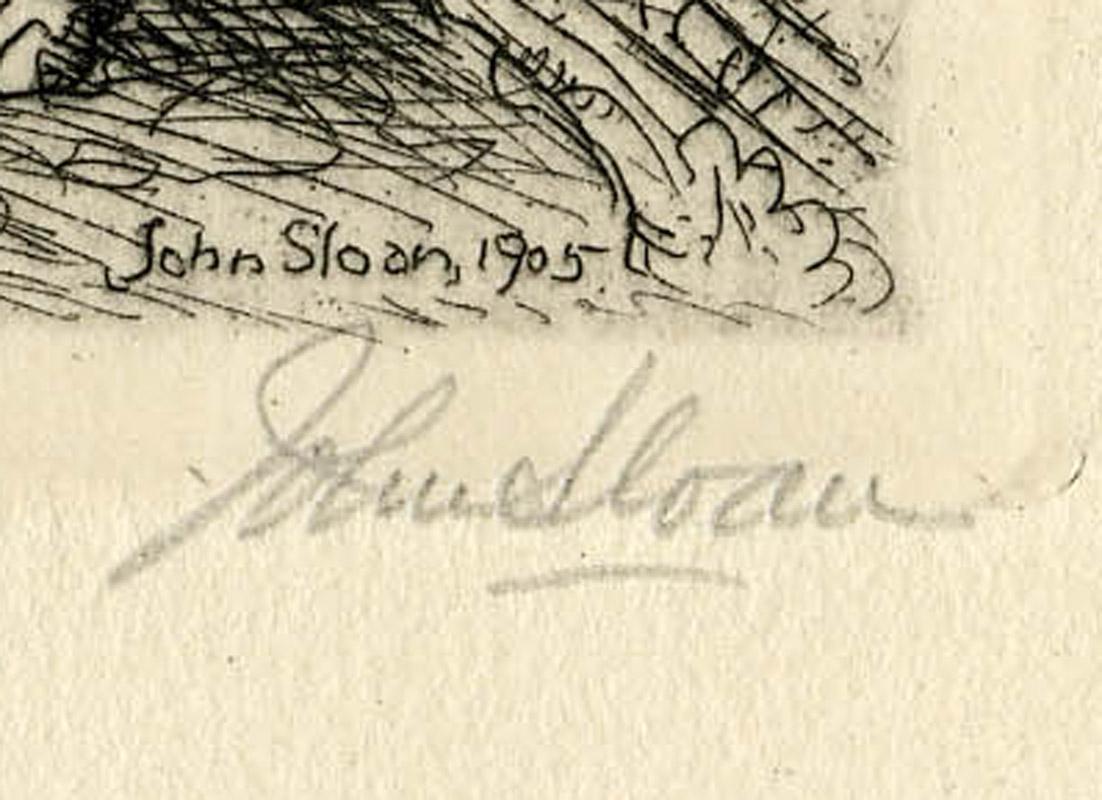 John Sloan, 1905
John Sloan